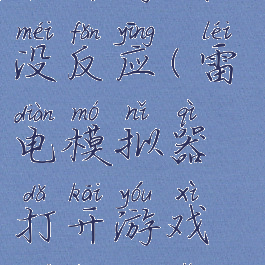 méi fǎn yīng léi
没反应(雷
diàn mó nǐ qì
电模拟器
dǎ kāi yóu xì
打开游戏